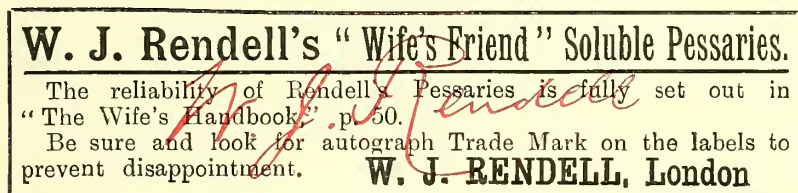 W. J. Rendell's "Wife's Friend" Soluble Pessaries.
The reliability of Rendell's Pessaries is fully set out in
"The Wife's Handbook," p. 50.
Be sure and look for autograph Trade Mark on the labels to
prevent disappointment. W. J. RENDELL, London
W. J. Rendell